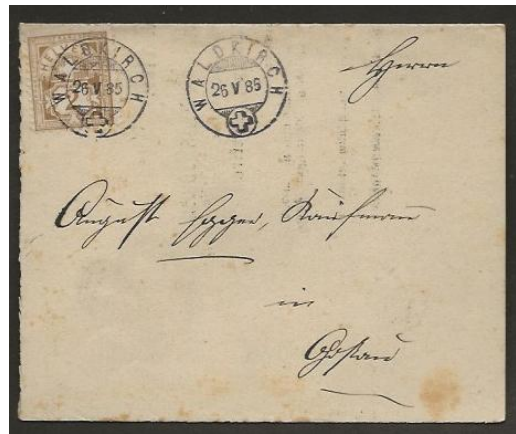 HELVETIA
WALDKIRCH
26 V 85
WALDKIRCH
26 V 85
Herrn
August Egger, Kaufmann
in
Goßau